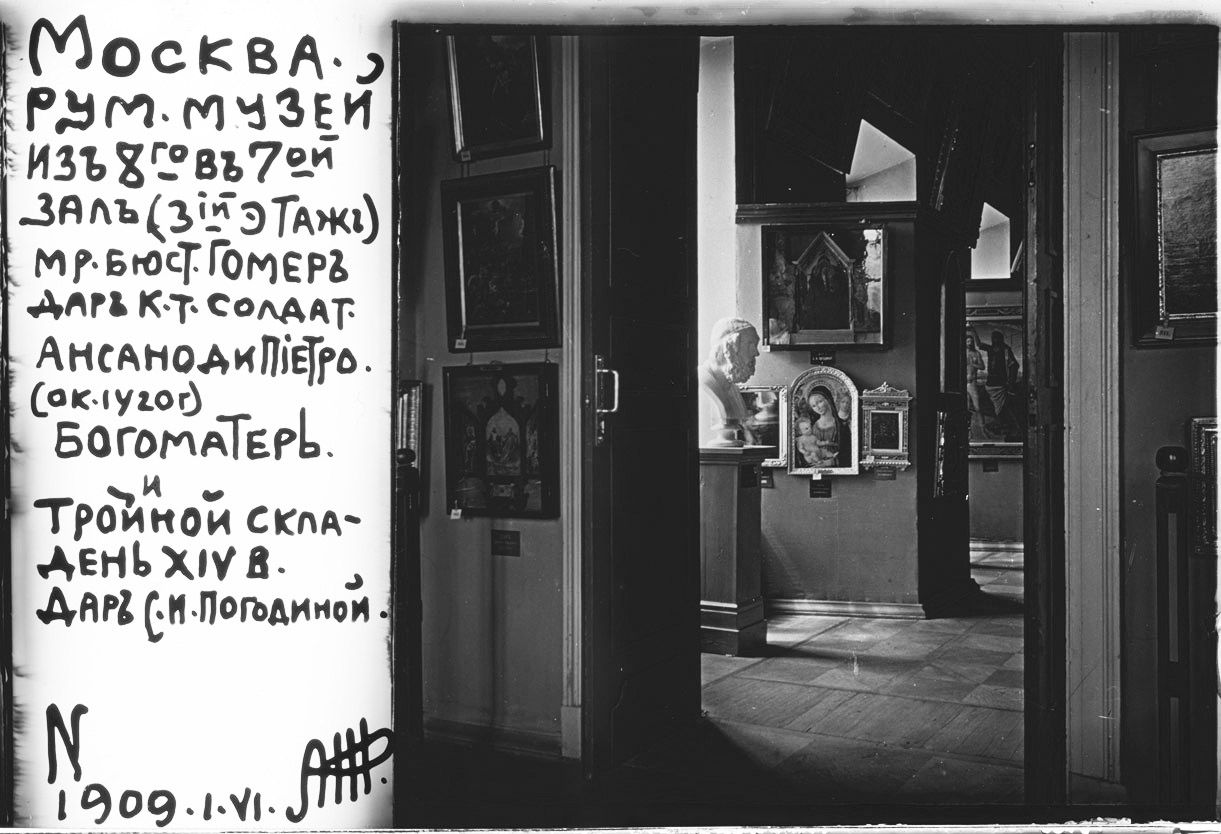 Москва.
Рум. музей
изъ 8го въ 7ой
залъ (3iй этажъ)
мр. бюст. Гомеръ
даръ К.Т. Солдат.
Ансано ди Пiетро.
(ок. 1420г)
Богоматерь.
и
тройной скла-
день XIV в.
Даръ С.И. Погодиной.
N
1909.I.VI.